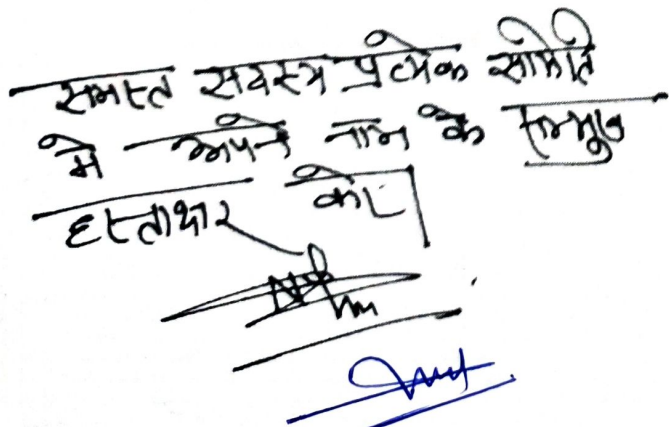 समस्त सदस्य प्रत्येक समिति
मे अपने नाम के सम्मुख
हस्ताक्षर करे।